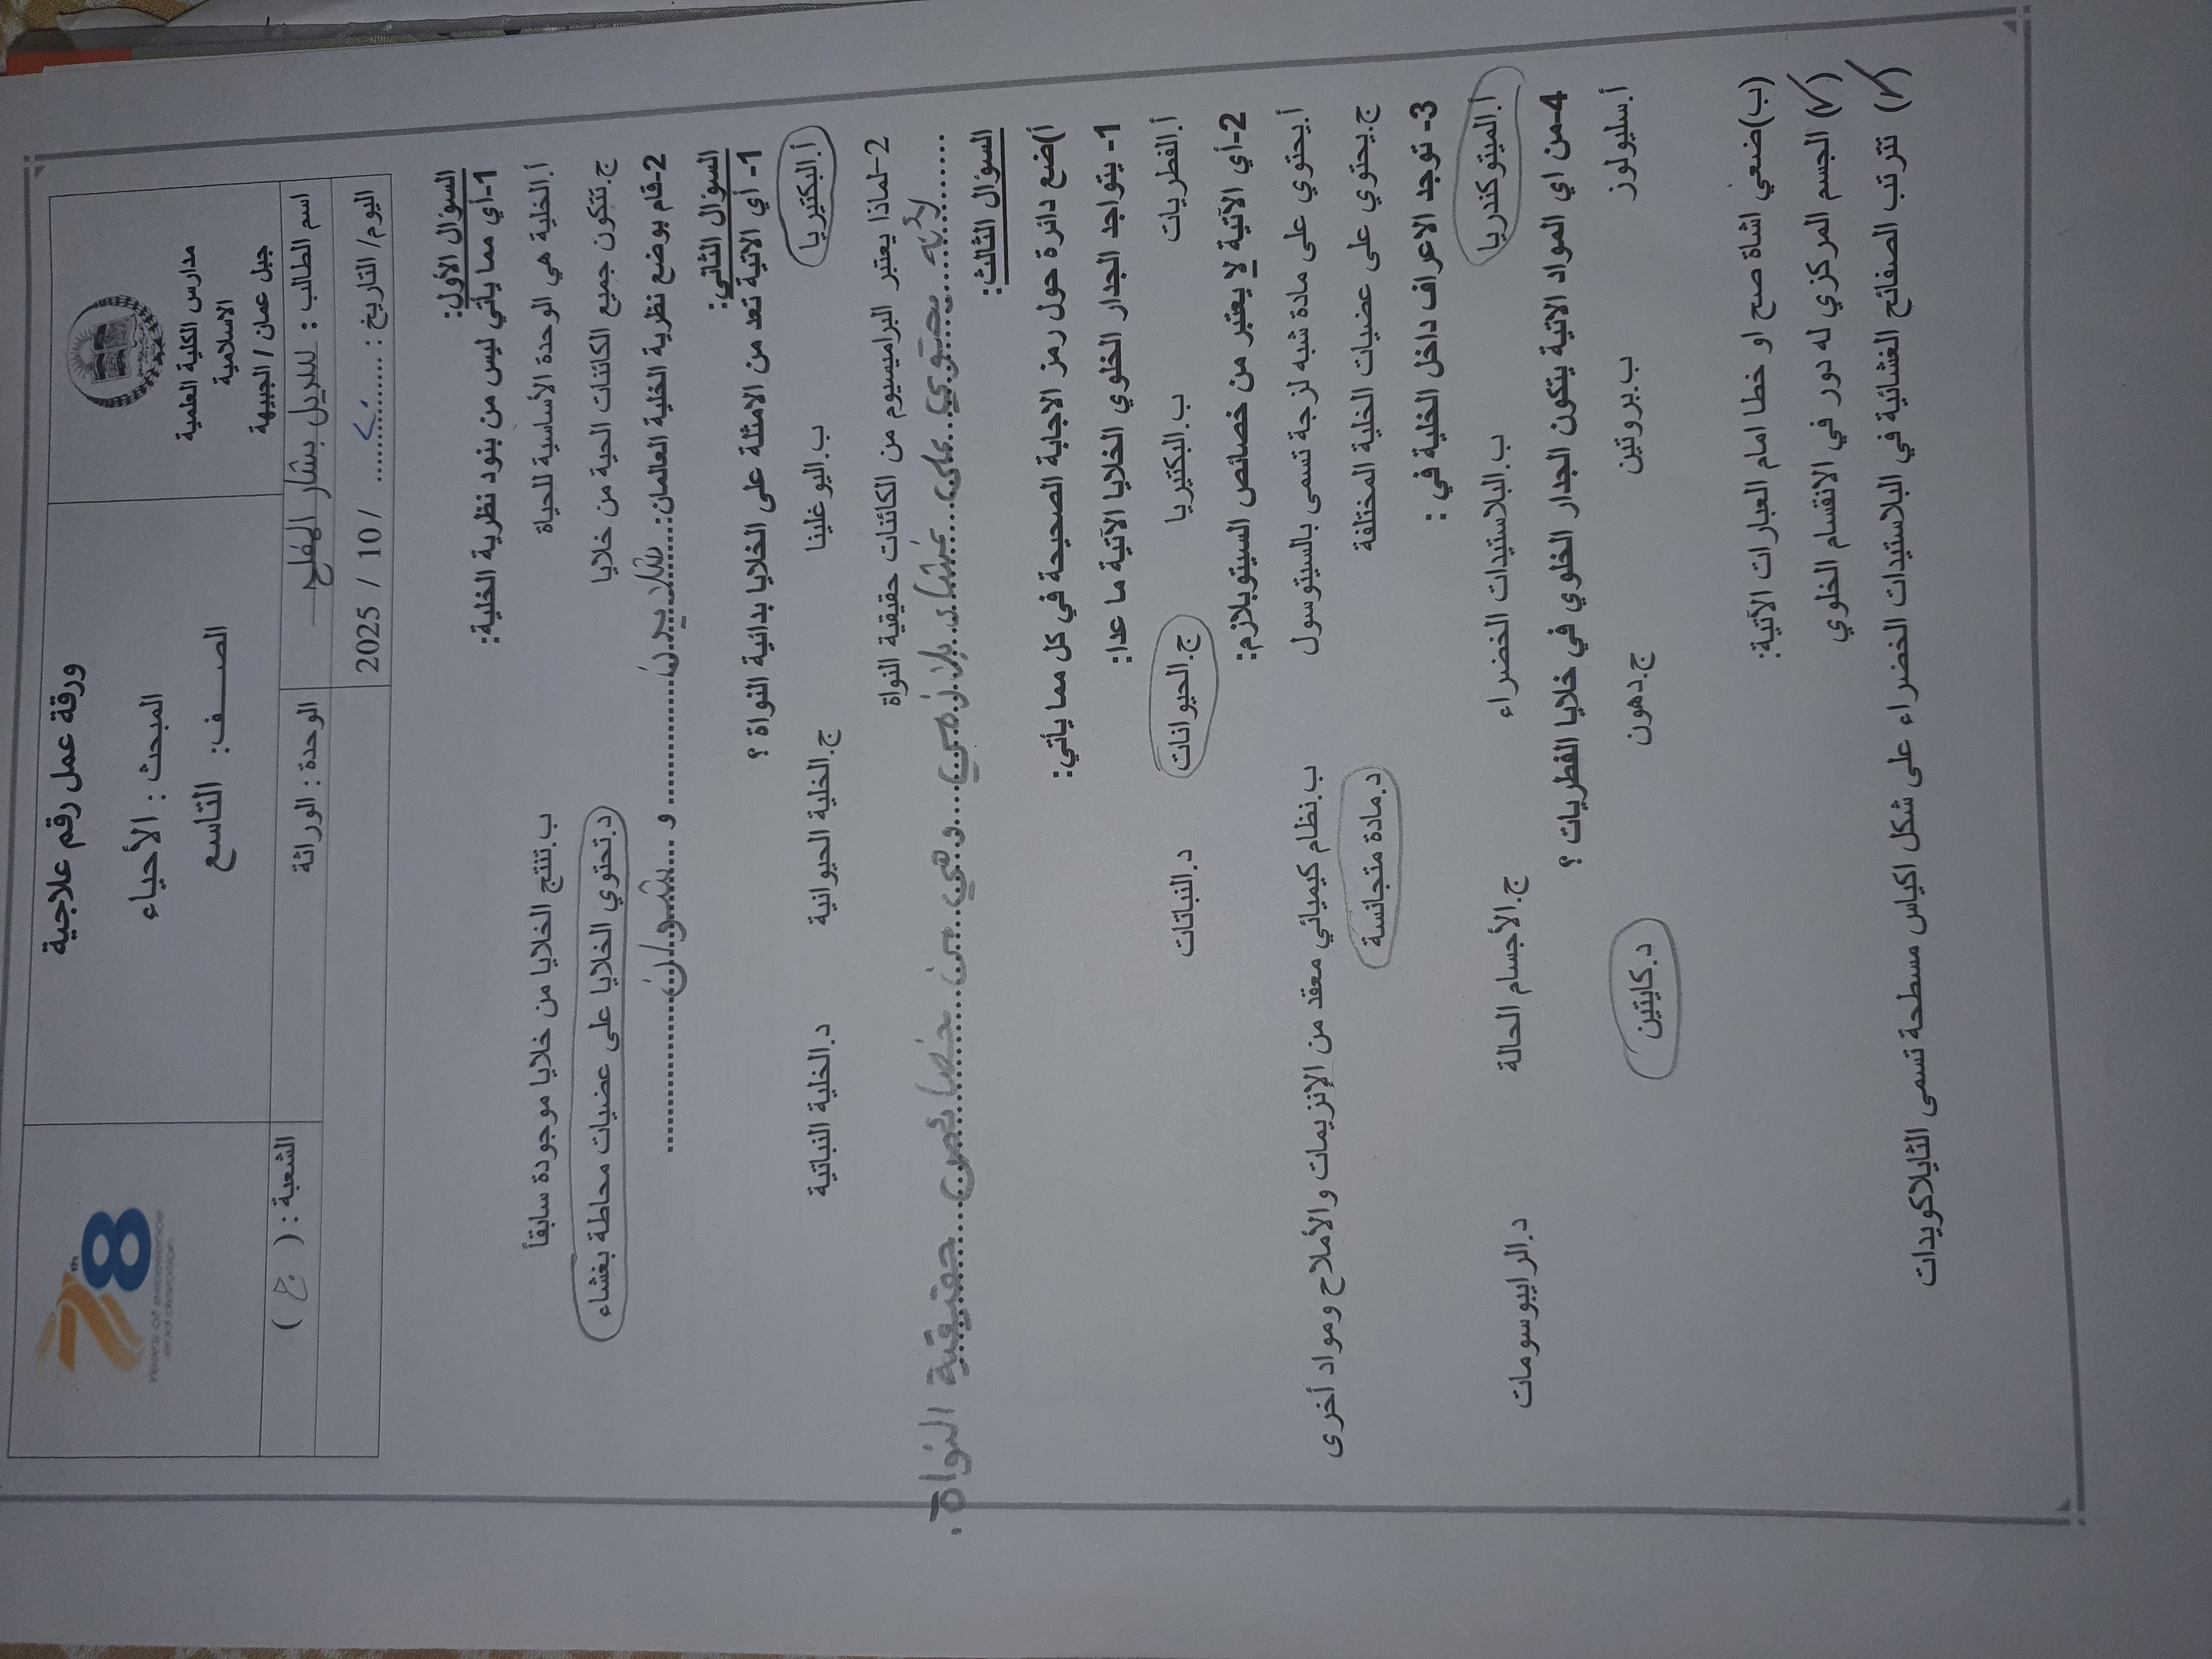 ورقة عمل رقم علاجية
المبحث : الأحياء
الصـــف: التاسع
مدارس الكلية العلمية
الاسلامية
جبل عمان / الجبيهة
78
th
years of excellence
and devotion
اسم الطالب : بشار المفلح
الوحدة : الوراثة
الشعبة : ( ج )
اليوم/ التاريخ : ............ / 10 / 2025
السؤال الأول:
1-أي مما يأتي ليس من بنود نظرية الخلية:
أ.الخلية هي الوحدة الأساسية للحياة
ب.تنتج الخلايا من خلايا موجودة سابقاً
ج.تتكون جميع الكائنات الحية من خلايا
د.تحتوي الخلايا على عضيات محاطة بغشاء
2-قام بوضع نظرية الخلية العالمان: شلايدن و شوان
السؤال الثاني:
1- أي الاتية تعد من الامثلة على الخلايا بدائية النواة ؟
أ.البكتيريا ب.اليوغلينا ج.الخلية الحيوانية د.الخلية النباتية
2-لماذا يعتبر البراميسيوم من الكائنات حقيقية النواة
لأنه يحتوي على غشاء بلازمي وهي من خصائص حقيقية النواة.
السؤال الثالث:
أ)ضع دائرة حول رمز الاجابة الصحيحة في كل مما يأتي:
1- يتواجد الجدار الخلوي الخلايا الآتية ما عدا:
أ.الفطريات ب.البكتيريا ج.الحيوانات د.النباتات
2-أي الآتية لا يعتبر من خصائص السيتوبلازم:
أ.يحتوي على مادة شبه لزجة تسمى بالسيتوسول ب.نظام كيميائي معقد من الإنزيمات والأملاح ومواد أخرى
ج.يحتوي على عضيات الخلية المختلفة د.مادة متجانسة
3- توجد الاعراف داخل الخلية في :
أ.الميتوكندريا ب.البلاستيدات الخضراء ج.الأجسام الحالة د.الرايبوسومات
4-من اي المواد الاتية يتكون الجدار الخلوي في خلايا الفطريات ؟
أ.سليولوز ب.بروتين ج.دهون د.كايتين
(ب)ضعي اشاة صح او خطا امام العبارات الآتية:
(✓) الجسم المركزي له دور في الانقسام الخلوي
(✓) تترتب الصفائح الغشائية في البلاستيدات الخضراء على شكل اكياس مسطحة تسمى الثايلاكويدات